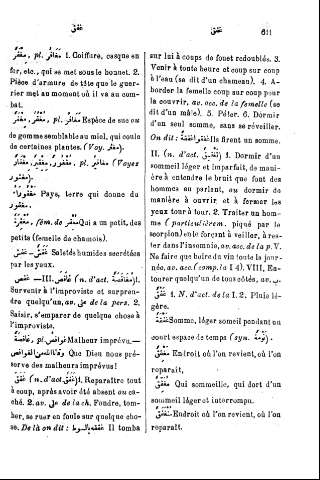 غفق
غفق
611
مِغْفَرٌ, pl. مَغَافِرُ. 1. Coiffure, casque en
fer, etc., qui se met sous le bonnet. 2.
Pièce d'armure de tête que le guer-
rier met au moment où il va au com-
bat.
pl. Espèce de suc ou
de gomme semblable au miel, qui coule
de certaines plantes. (Voy.
(Voyez
Pays, terre qui donne du
fém. de Qui a un petit, des
petits (femelle de chamois).
Saletés humides secrétées
par les yeux.
غفص —III. (n. d'act.) 1.
Survenir à l'improviste et surpren-
dre quelqu'un, av. على de la pers. 2.
Saisir, s'emparer de quelque chose à
l'improviste.
pl. Malheur imprévu—
Que Dieu nous pré-
serve des malheurs imprévus !
غفق (n. d'act. غفق) 1. Reparaître tout
à coup, après avoir été absent ou ca-
ché. 2. av. على de la ch. Fondre, tom-
ber, se ruer en foule sur quelque cho-
se. De là on dit : غفقه بالسوط Il tomba
sur lui à coups de fouet redoublés. 3.
Venir à toute heure et coup sur coup
à l'eau (se dit d'un chameau). 4. A-
border la femelle coup sur coup pour
la couvrir, av. acc. de la femelle (se
dit d'un mâle). 5. Péter. 6. Dormir
d'un seul somme, sans se réveiller.
On dit : Ils firent un somme.
II. (n. d'act. تغفيق) 1. Dormir d'un
sommeil léger et imparfait, de maniè-
re à entendre le bruit que font des
hommes en parlant, ou dormir de
manière à ouvrir et à fermer les
yeux tour à tour. 2. Traiter un hom-
me (particulièrem. piqué par le
scorpion) en le forçant à veiller, à res-
ter dans l'insomnie, av. acc. de la p. V.
Ne faire que boire du vin toute la jour-
née, av. acc. (comp. la I 4). VIII. En-
tourer quelqu'un de tous côtés, av. ب.
غفق 1. N. d'act. de la I. 2. Pluie lé-
gère.
غفقة Somme, léger sommeil pendant un
court espace de temps (syn. نومة).
Endroit où l'on revient, où l'on
reparaît.
Qui sommeille, qui dort d'un
sommeil léger et interrompu.
Endroit où l'on revient, où l'on
reparaît.